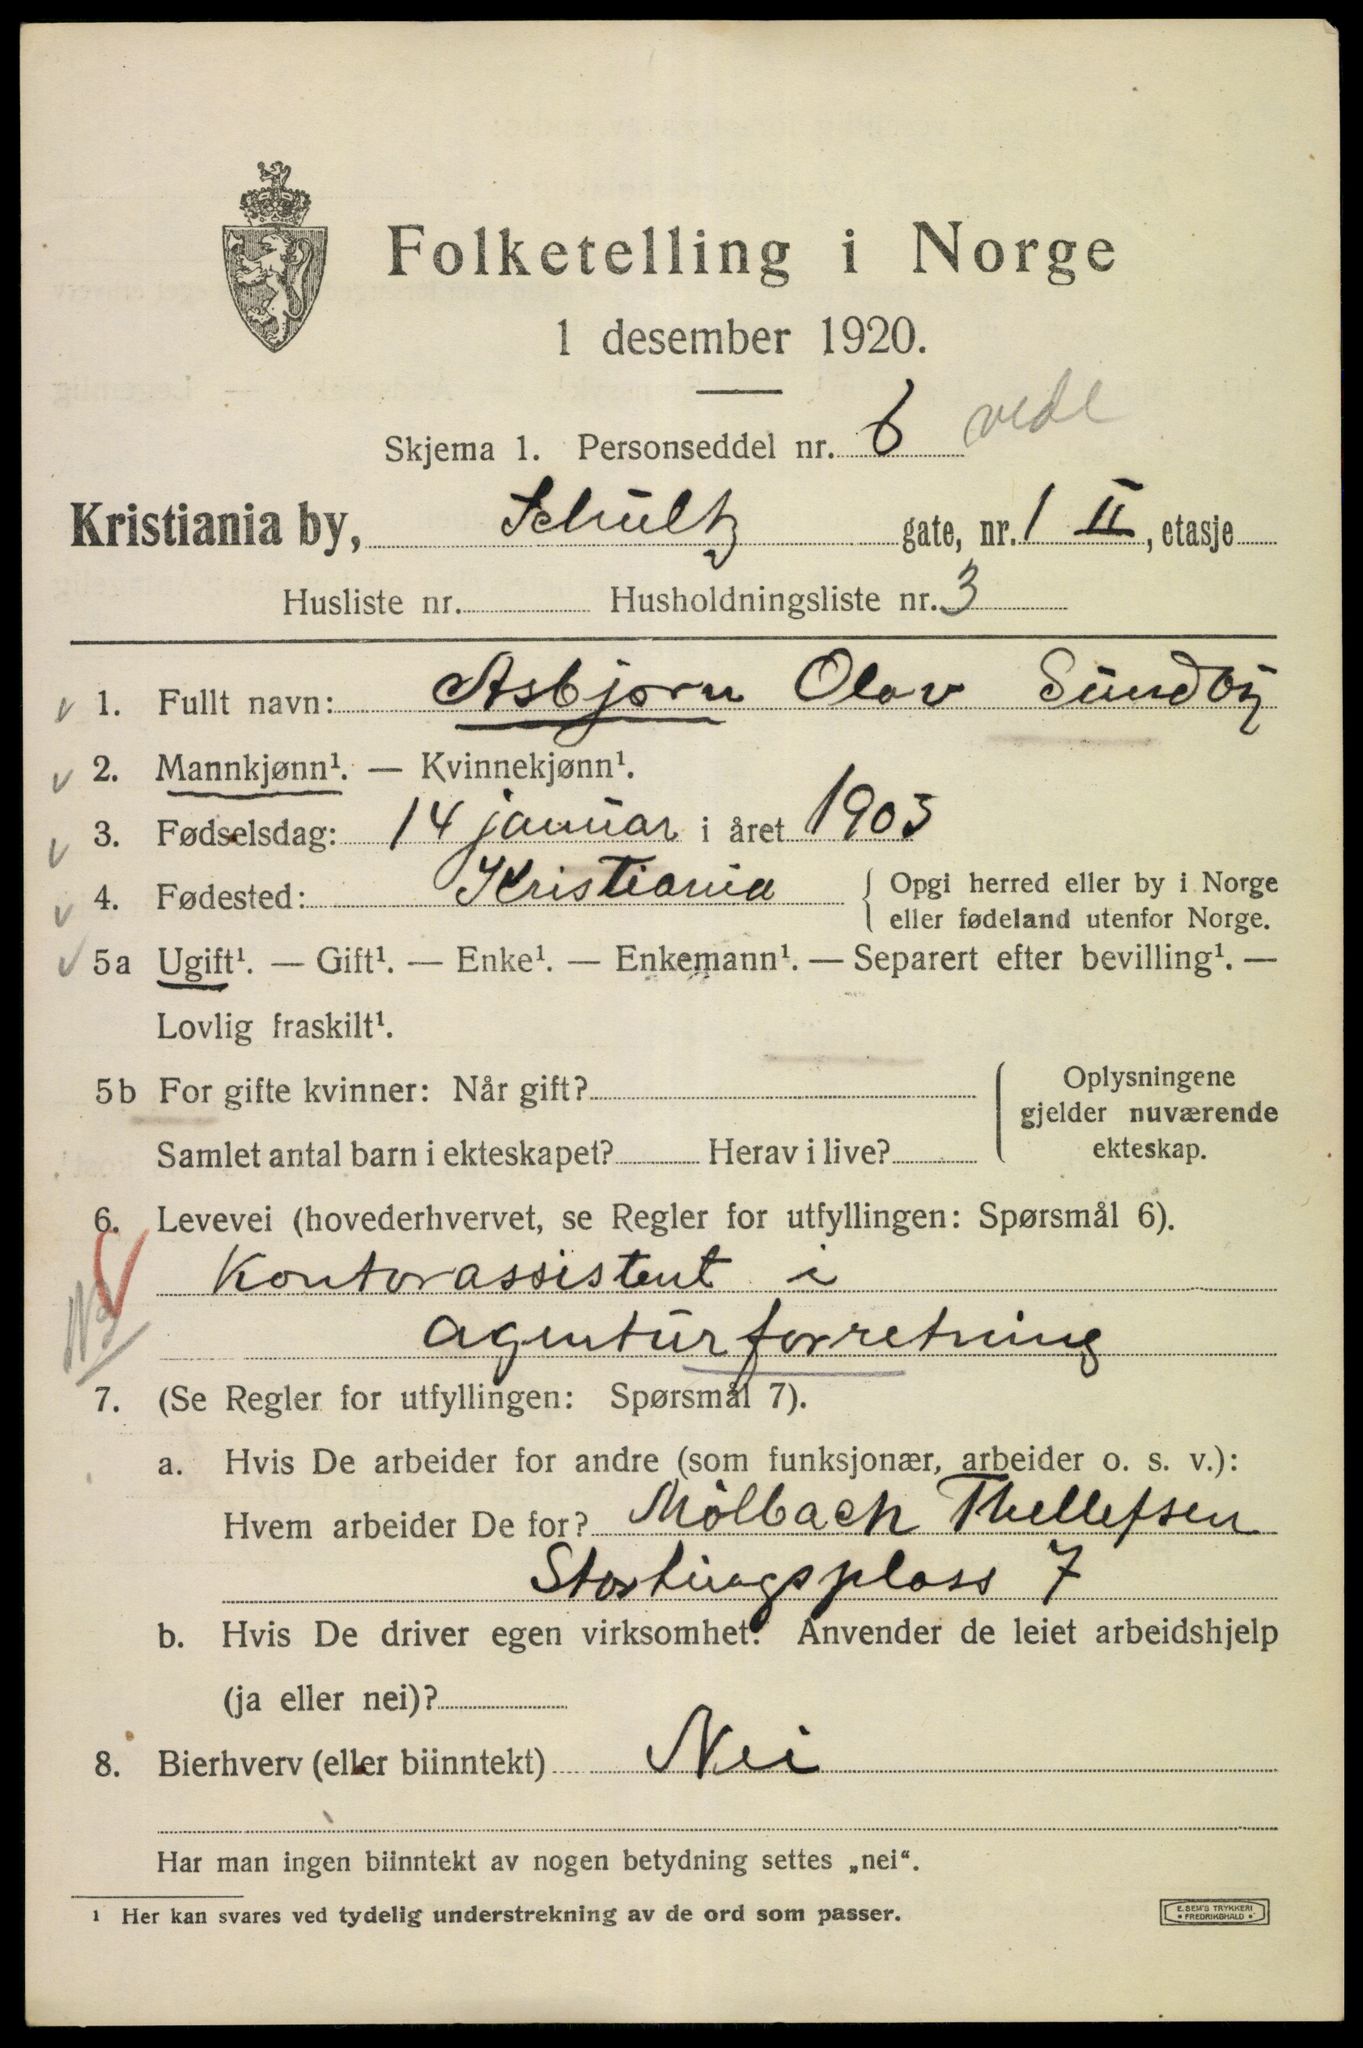 Folketelling i Norge
1 desember 1920.
Skjema 1. Personseddel nr. 6
Kristiania by, Schultz gate, nr. 1 II, etasje
Husliste nr. Husholdningsliste nr. 3
1. Fullt navn: Asbjørn Olav Sundby
2. Mannkjønn¹. — Kvinnekjønn¹.
3. Fødselsdag: 14 januar i året 1903
4. Fødested: Kristiania { Opgi herred eller by i Norge
eller fødeland utenfor Norge.
5a Ugift¹. — Gift¹. — Enke¹. — Enkemann¹. — Separert efter bevilling¹. —
Lovlig fraskilt¹.
5b For gifte kvinner: Når gift? { Oplysningene
gjelder nuværende
Samlet antal barn i ekteskapet? Herav i live? ekteskap.
6. Levevei (hovederhvervet, se Regler for utfyllingen: Spørsmål 6).
Kontorassistent i
agenturforretning
7. (Se Regler for utfyllingen: Spørsmål 7).
a. Hvis De arbeider for andre (som funksjonær, arbeider o. s. v.):
Hvem arbeider De for? Mølbach Thellefsen
Stortingsplass 7
b. Hvis De driver egen virksomhet: Anvender de leiet arbeidshjelp
(ja eller nei)?
8. Bierhverv (eller biinntekt) Nei
Har man ingen biinntekt av nogen betydning settes „nei“.
¹ Her kan svares ved tydelig understrekning av de ord som passer.
E. SEM'S TRYKKERI
• FREDRIKSHALD •